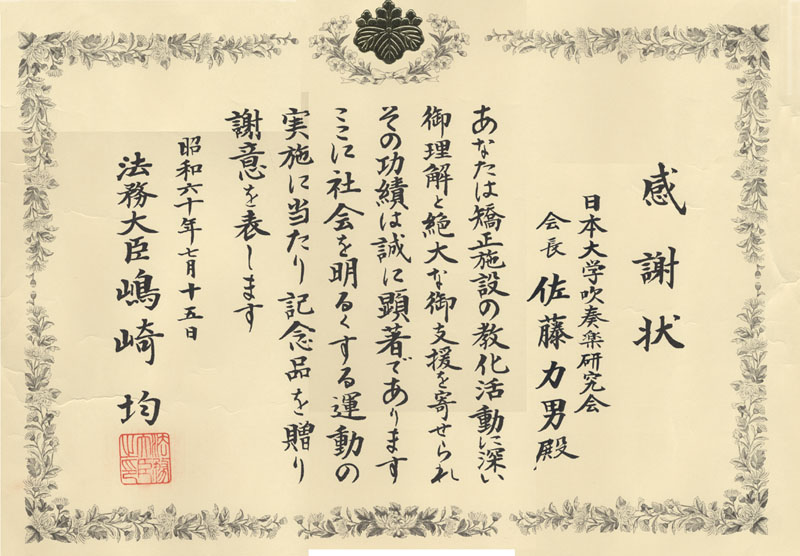 感謝状
日本大学吹奏楽研究会
会長 佐藤力男殿
あなたは矯正施設の教化活動に深い
御理解と絶大な御支援を寄せられ
その功績は誠に顕著であります
ここに社会を明るくする運動の
実施に当たり記念品を贈り
謝意を表します
昭和六十年七月十五日
法務大臣嶋崎均
法務大臣之印